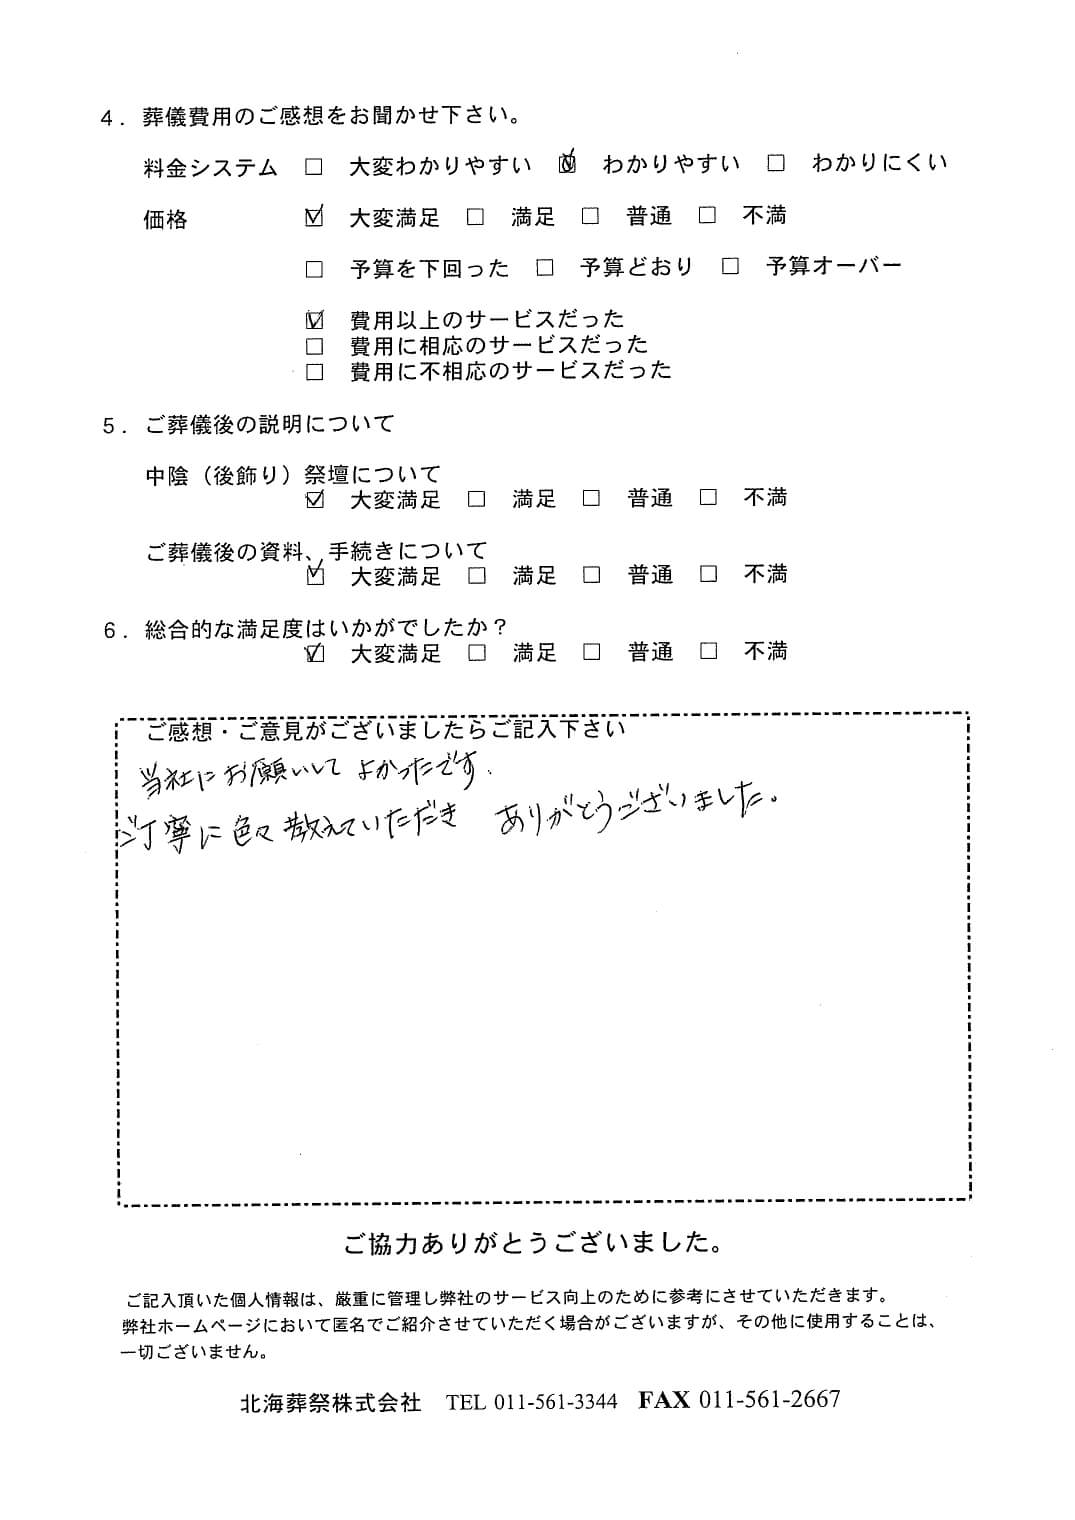 4．葬儀費用のご感想をお聞かせ下さい。
料金システム □ 大変わかりやすい ☑ わかりやすい □ わかりにくい
価格 ☑ 大変満足 □ 満足 □ 普通 □ 不満
□ 予算を下回った □ 予算どおり □ 予算オーバー
☑ 費用以上のサービスだった
□ 費用に相応のサービスだった
□ 費用に不相応のサービスだった
5．ご葬儀後の説明について
中陰（後飾り）祭壇について
☑ 大変満足 □ 満足 □ 普通 □ 不満
ご葬儀後の資料、手続きについて
☑ 大変満足 □ 満足 □ 普通 □ 不満
6．総合的な満足度はいかがでしたか？
☑ 大変満足 □ 満足 □ 普通 □ 不満
ご感想・ご意見がございましたらご記入下さい
当社にお願いして よかったです.
ご丁寧に色々教えていただき ありがとうございました。
ご協力ありがとうございました。
ご記入頂いた個人情報は、厳重に管理し弊社のサービス向上のために参考にさせていただきます。
弊社ホームページにおいて匿名でご紹介させていただく場合がございますが、その他に使用することは、
一切ございません。
北海葬祭株式会社 TEL 011-561-3344 FAX 011-561-2667